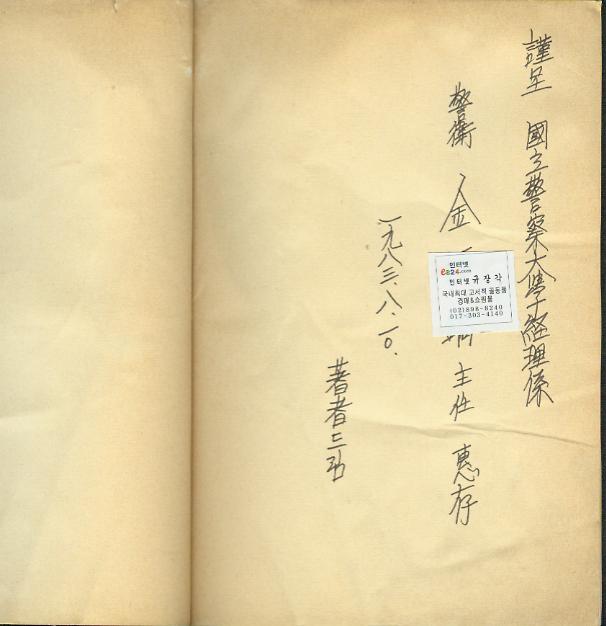 謹呈 國立警察大學 經理係
警衛 金 主任 惠存
一九八三.八.一〇.
著者 드림
인터넷
인터넷 규장각
국내최대 고서적 골동품
경매&쇼핑몰
(02)898-8240
017-303-4140